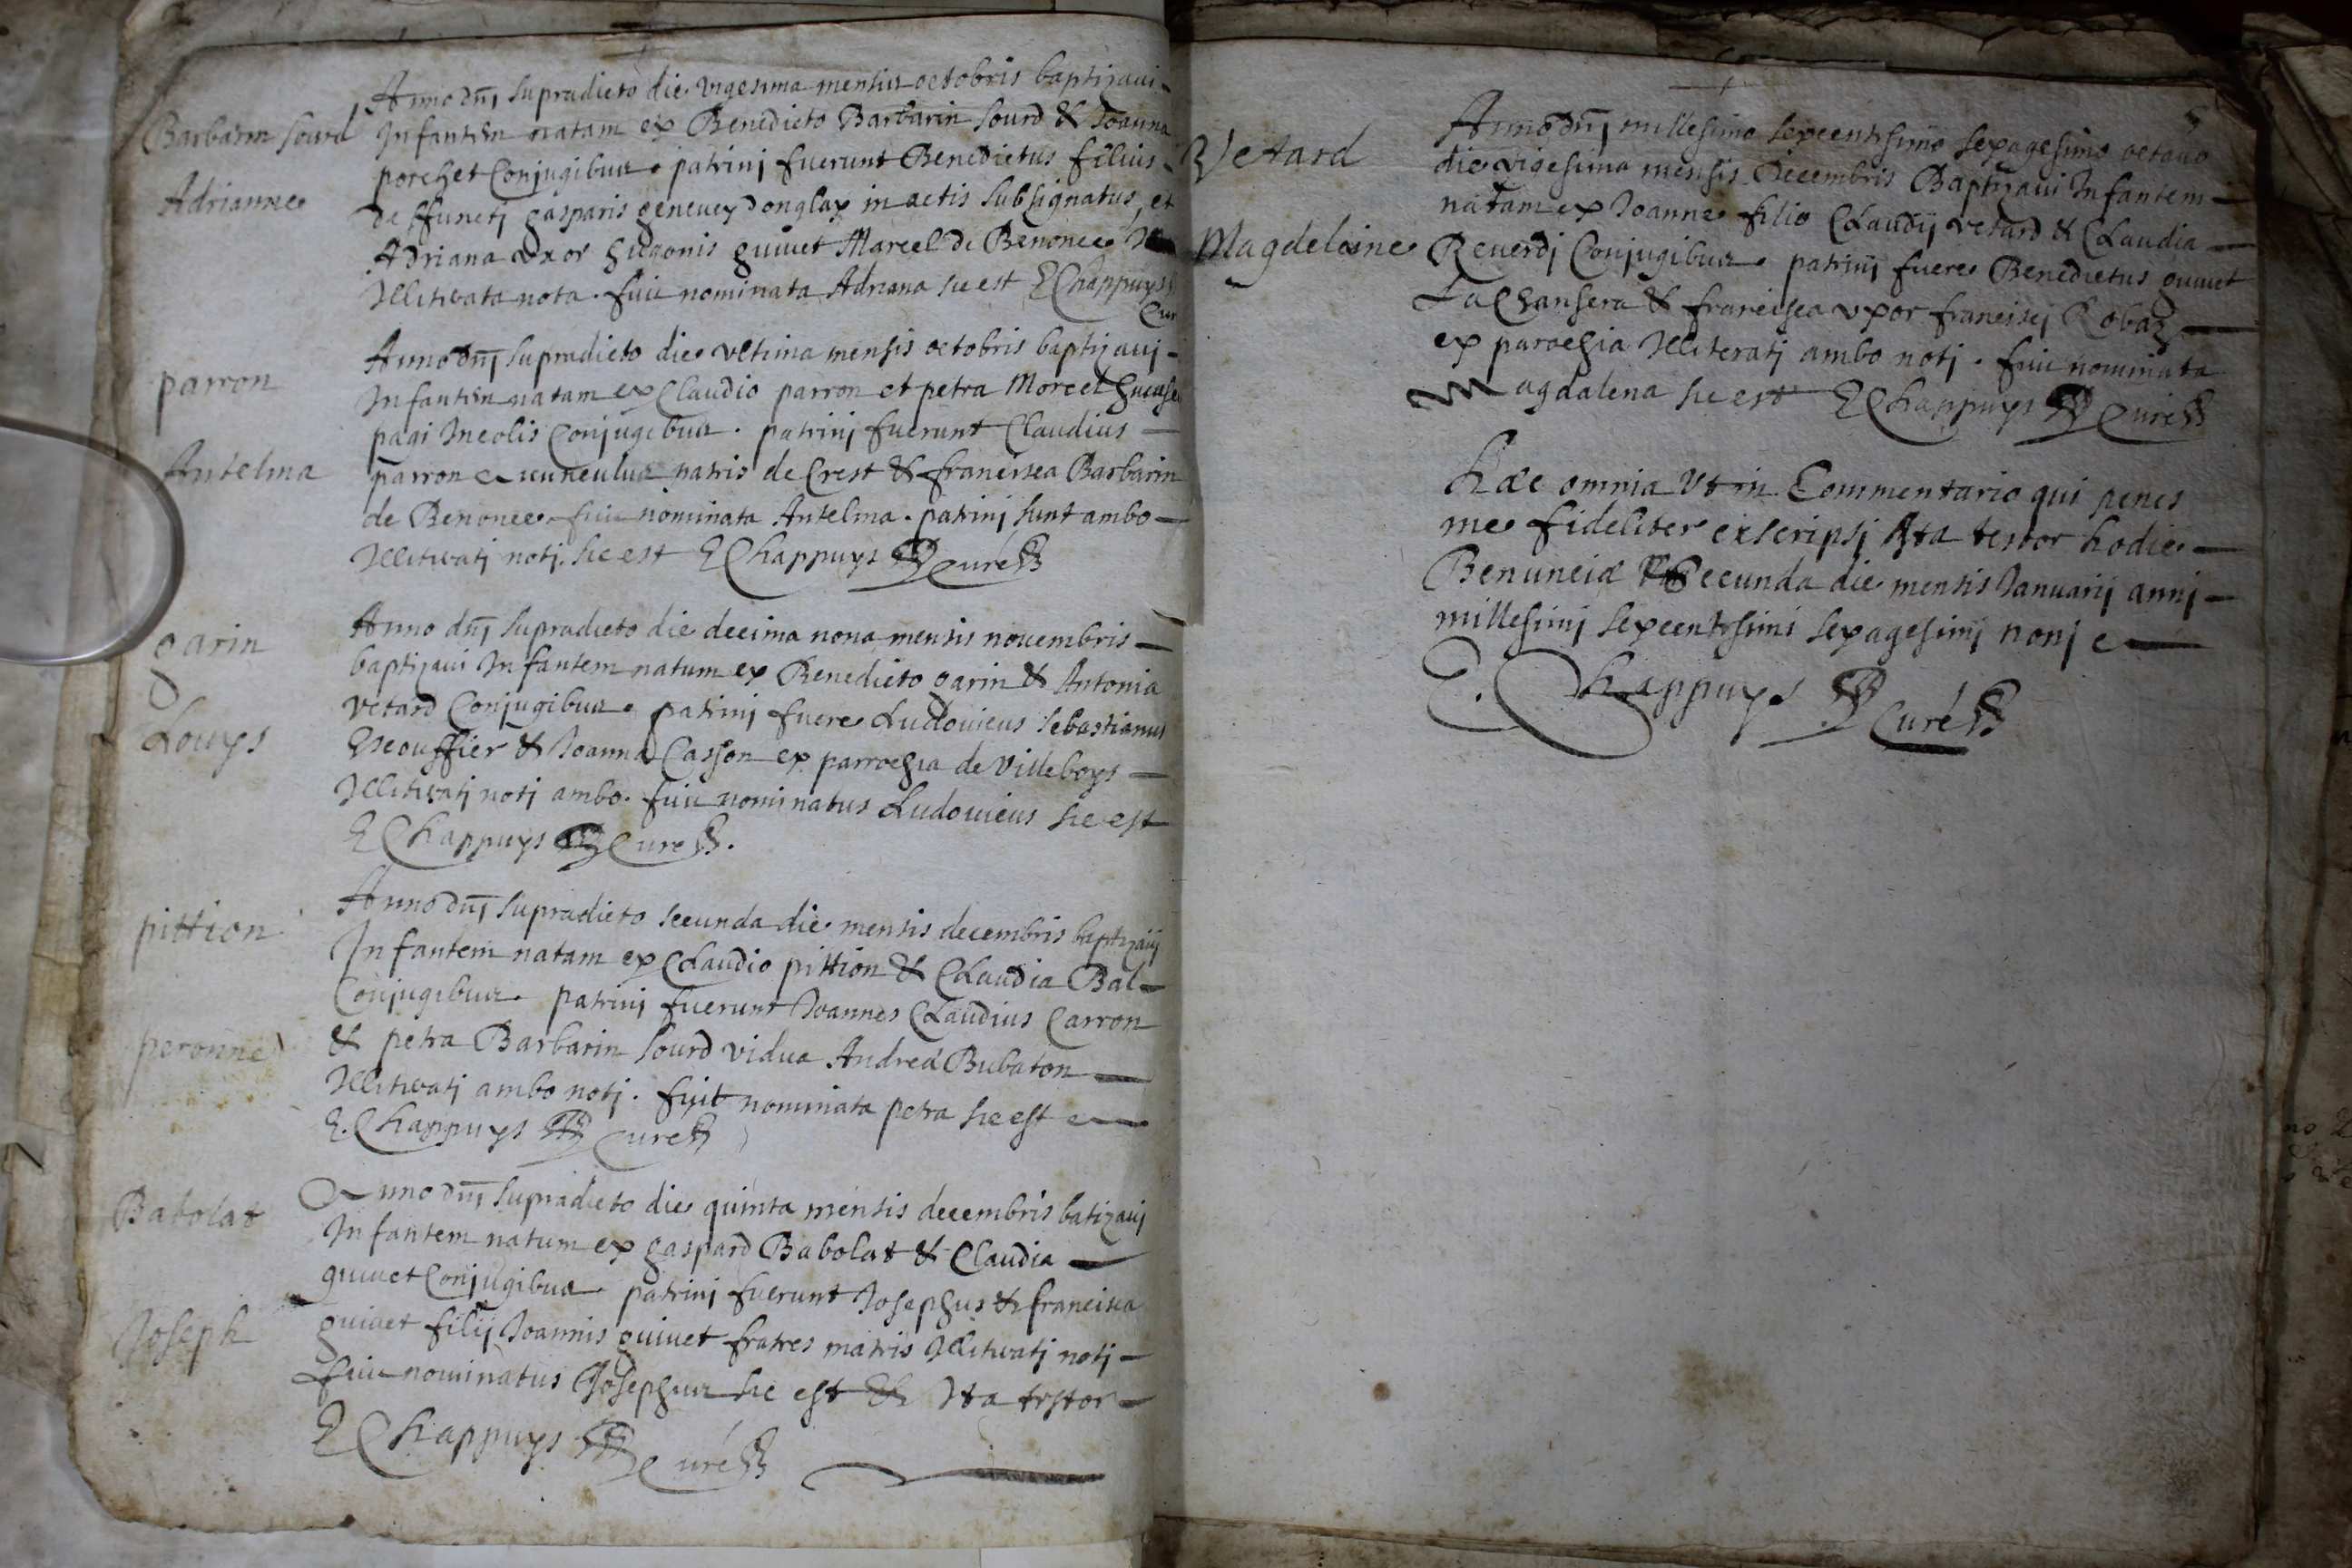 Anno dnj supradicto die vigesima mensis octobris baptizaui
Barbarin sourd
Infantem natam ex Benedicto Barbarin sourd & Joanna
porchet Conjugibus. patrinj fuerunt Benedictus filius
Adrianne
deffunctj gasparis geneuey donglax in actis subsignatus, et
Adriana vxor hugonis guiuet Marcel de Benonce
Illiterata nota. fuit nominata Adriana sic est E Chappuys
Cur
Anno dnj supradicto die vltima mensis octobris baptizauj
parron
Infantem natam ex Claudio parron et petra Morcel
pagi Incolis Conjugibus. patrinj fuerunt Claudius
Antelma
parron auunculus patris de Crest & francisca Barbarin
de Benonce. fuit nominata Antelma. patrinj sunt ambo
Illiteratj notj. sic est E Chappuys Curé
Anno dnj supradicto die decima nona mensis nouembris
garin
baptizaui Infantem natum ex Benedicto garin & Antonia
vetard Conjugibus. patrinj fuere Ludouicus sebastianus
Louys
Escouffier & Joanna Casson ex parrochia de Villeboys
Illiteratj notj ambo. fuit nominatus Ludouicus sic est
E Chappuys Curé.
Anno dnj supradicto secunda die mensis decembris baptizauj
pittion
Infantem natam ex Claudio pittion & Claudia Bal
Conjugibus. patrinj fuerunt Joannes Claudius Carron
peronne
& petra Barbarin sourd vidua Andreæ Bubaton
Illiteratj ambo notj. fuit nominata petra sic est
E. Chappuys Curé
Anno dnj supradicto die quinta mensis decembris batizauj
Babolat
Infantem natum ex gaspard Babolat & Claudia
guiuet Conjugibus. patrinj fuerunt Josephus & francisca
Joseph
guiuet filij Joannis guiuet fratres matris Illiteratj notj
fuit nominatus Josephus sic est & Ita testor
E Chappuys Curé
Anno dnj millesimo sexcentesimo sexagesimo octauo
Vetard
die vigesima mensis Decembris Baptizaui Infantem
natam ex Joanne filio Claudij vetard & Claudia
Magdeleine
Reuerdj Conjugibus. patrinj fuere Benedictus guiuet
La Chansera & francisca vxor francisci Robaz
ex parochia Illiteratj ambo notj. fuit nominata
Magdalena sic est E Chappuys Curé
Hæc omnia Vt in Commentario qui penes
me fideliter exscripsj Ita testor hodie
Benunciæ secunda die mensis Januarij annj
millesimj sexcentesimi sexagesimj nonj
E. Chappuys Curé